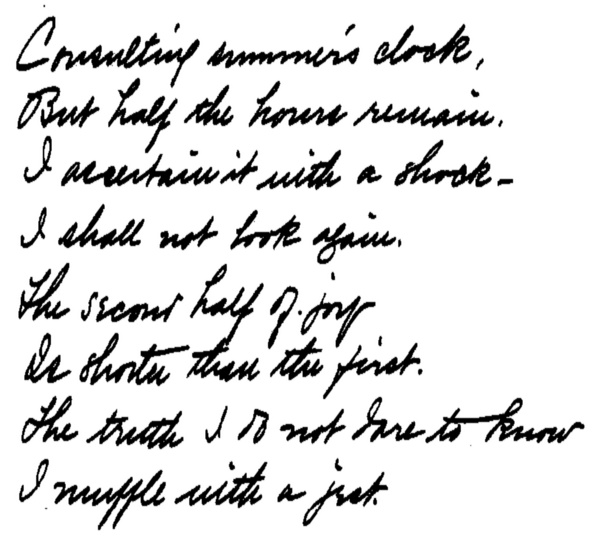 Consulting summer's clock,
But half the hours remain.
I ascertain it with a shock –
I shall not look again.
The second half of joy
Is shorter than the first.
The truth I do not dare to know
I muffle with a jest.